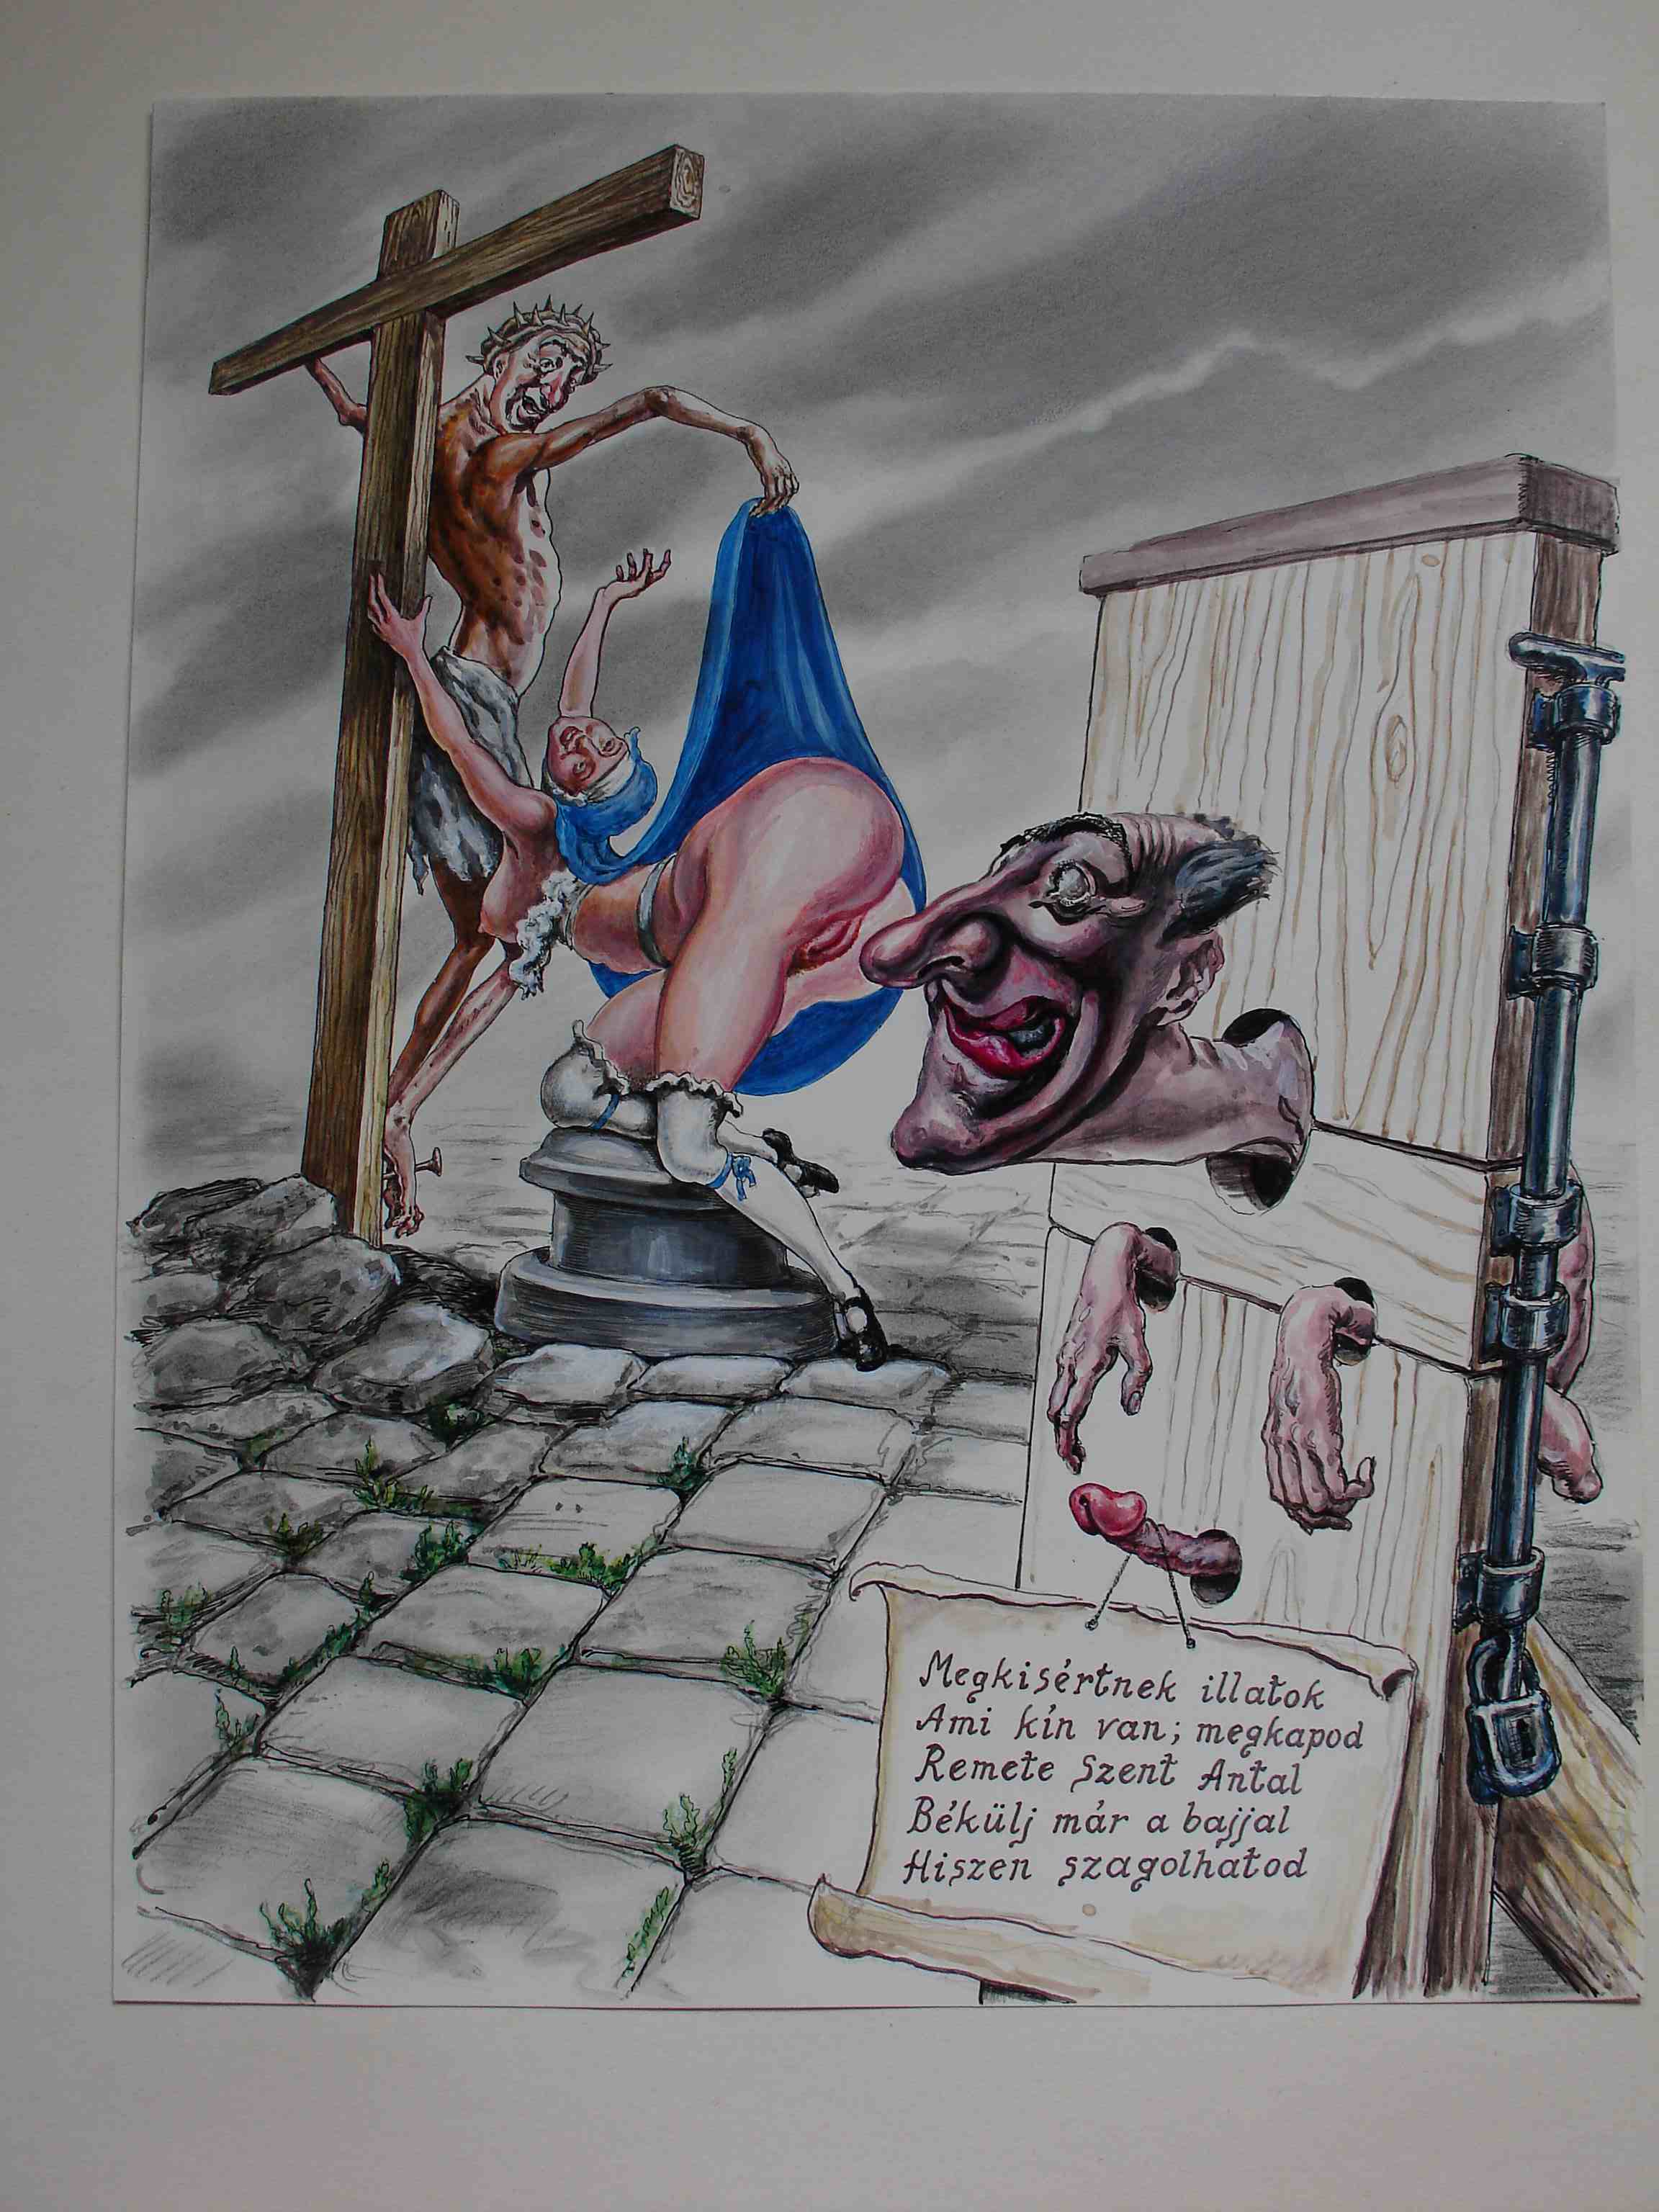 Megkisértnek illatok
Ami kín van; megkapod
Remete Szent Antal
Békülj már a bajjal
Hiszen szagolhatod